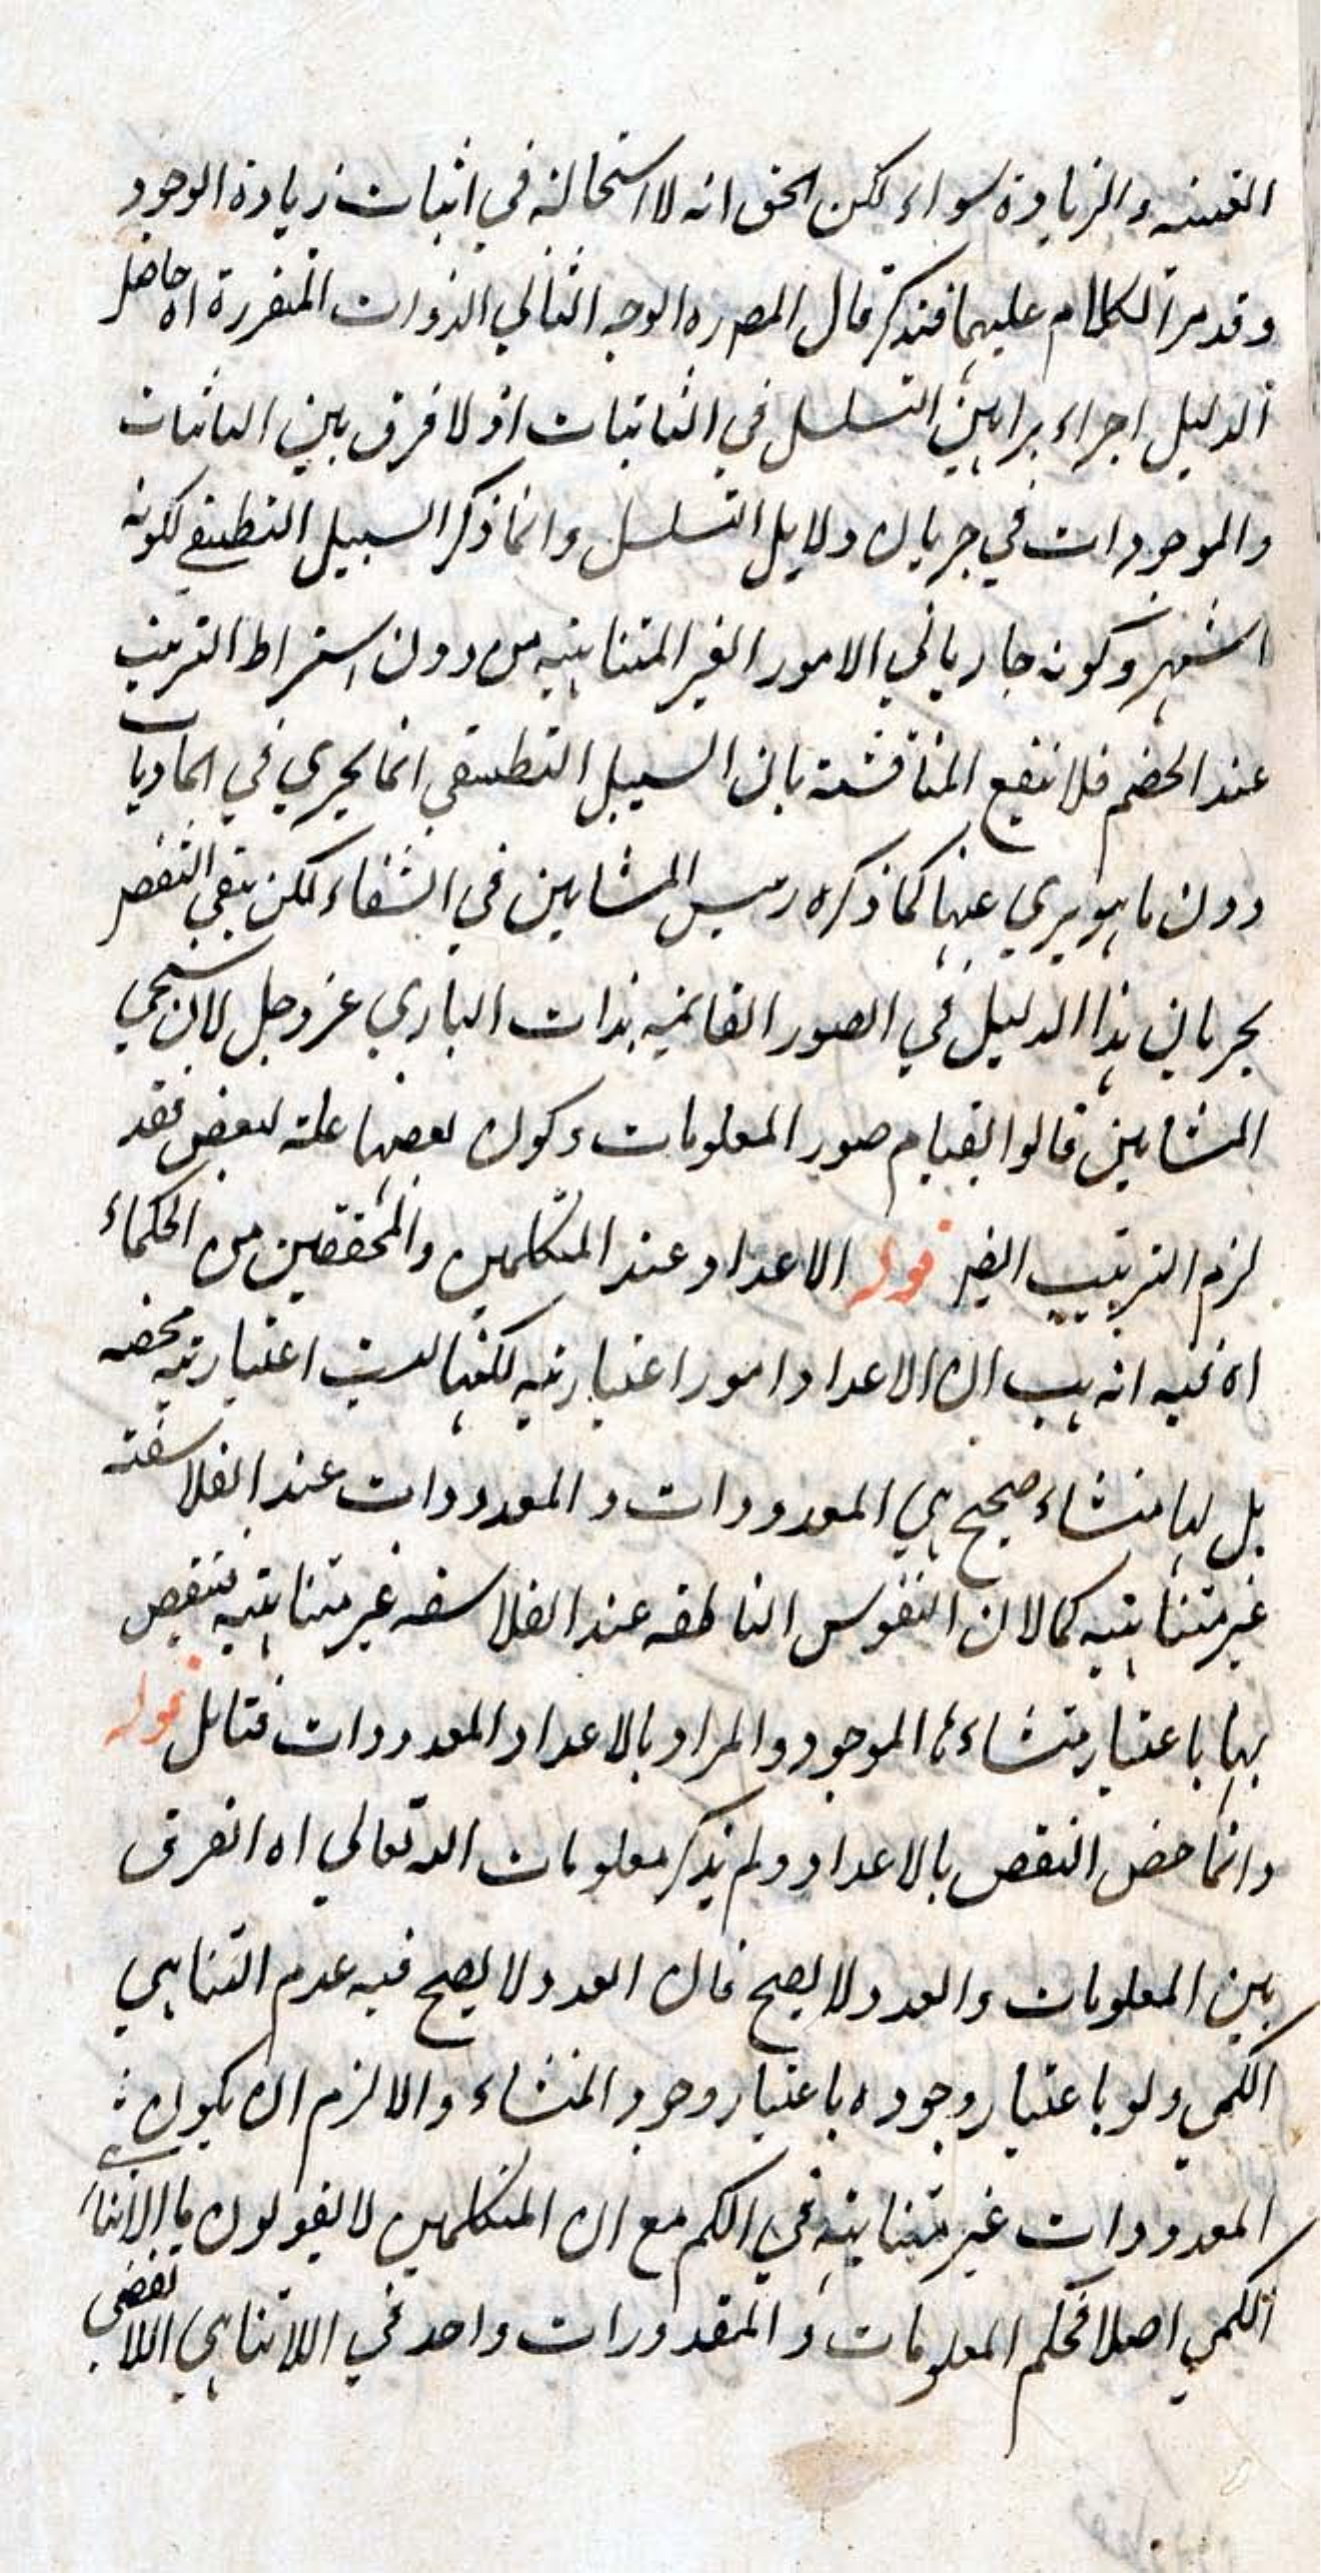 العينيه والزيادة سواء لكن الحق انه لا استحالة في اثبات زيادة الوجود
وقد مر الكلام عليهما فتذكر قال المصره الوجه الثاني الذوات المتقررة اه حاصل
الدليل اجراء براهين التسلسل في الثابتات اذ لا فرق بين الثابتات
والموجودات في جريان دلايل التسلسل وانما ذكر السبيل التطبيقي لكونه
اشهر وكونه جاريا في الامور الغير المتناهيه من دون اشتراط الترتيب
عند الخصم فلا تنفع المناقشة بان السبيل التطبيقي انما يجري في الماديات
دون ما هو بري عنها كما ذكره رييس المشايين في الشفاء لكن بقي النقض
بجريان هذا الدليل في الصور القائمة بذات الباري عز وجل لان متبعي
المشايين قالوا بقيام صور المعلومات وكون بعضها علة لبعض فقد
لزم الترتيب ايضا قوله الاعداد عند المتكلمين والمحققين من الحكماء
اه فيه انه هب ان الاعداد امور اعتباريه لكنها ليست اعتباريه محضه
بل لها منشاء صحيح هي المعدودات والمعدودات عند الفلاسفة
غير متناهيه كما لان النفوس الناطقه عند الفلاسفه غير متناهيه فنقض
بها باعتبار منشاءها الموجود والمراد بالاعداد المعدودات فتامل قوله
وانما خص النقض بالاعداد ولم يذكر معلومات الله تعالي اه الفرق
بين المعلومات والعدد لا يصح فان العدد لا يصح فيه عدم التناهي
الكمي ولو باعتبار وجوده باعتبار وجود المنشاء والا لزم ان يكون
المعدودات غير متناهية في الكم مع ان المتكلمين لا يقولون باللاتناهي
الكمي اصلا فحكم المعلومات والمقدورات واحد في اللاتناهي اللا تقفى